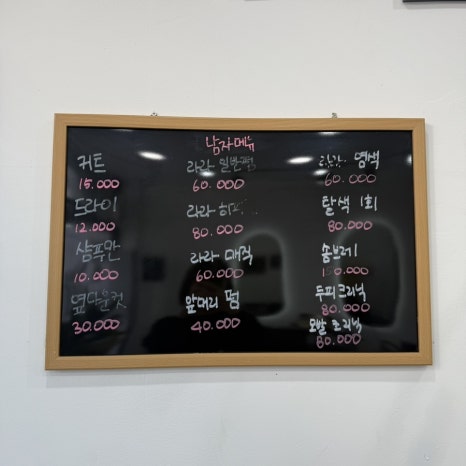 남자메뉴
커트
15.000
드라이
12.000
샴푸만
10.000
옆다운컷
30.000
라라 일반펌
60.000
라라
80.000
라라 매직
60.000
앞머리 펌
40.000
라라 염색
60.000
탈색 1회
80.000
150.000
두피크리닉
80.000
모발 크리닉
80.000